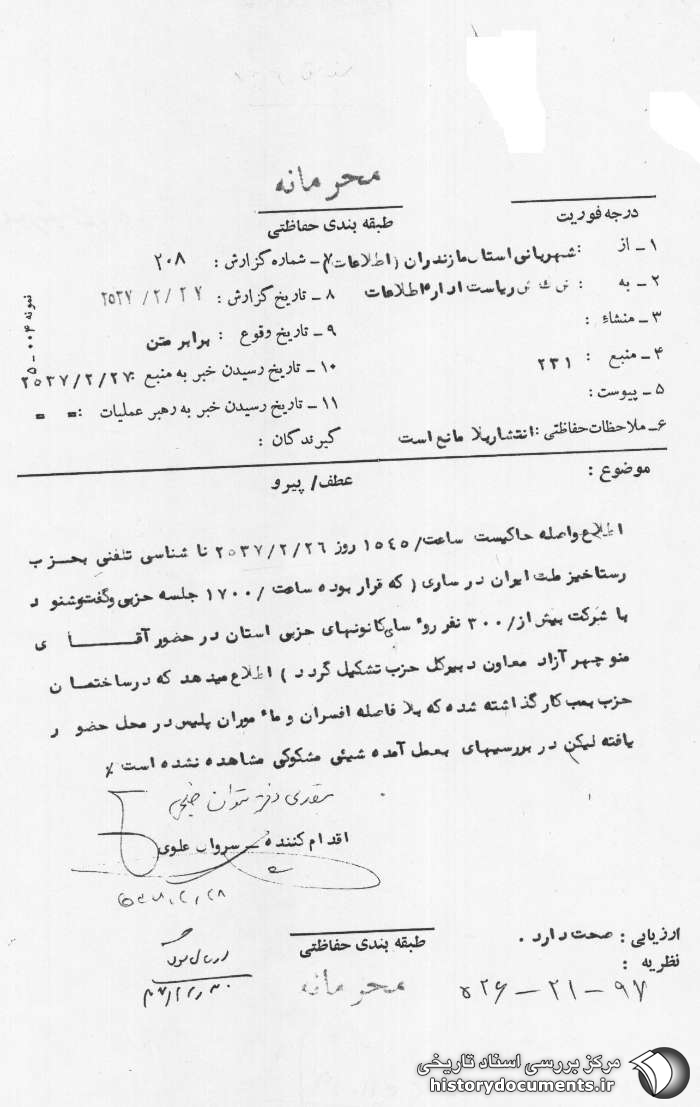 محرمانه
طبقه بندی حفاظتی
درجه فوریت
۱ــ از : شهربانی استان مازندران (اطلاعات)
۲ــ به : ش ک ش ریاست اداره اطلاعات
۳ــ منشاء :
۴ــ منبع : ۲۳۱
۵ــ پیوست :
۶ــ ملاحظات حفاظتی : انتشار بلا مانع است
۷ــ شماره گزارش : ۲۰۸
۸ــ تاریخ گزارش : ۲۵۳۷/۲/۲۷
۹ــ تاریخ وقوع : برابر متن
۱۰ــ تاریخ رسیدن خبر به منبع : ۲۵۳۷/۲/۲۷
۱۱ــ تاریخ رسیدن خبر به رهبر عملیات : = =
گیرندگان :
نمونه ۰۰۴ - ۵
موضوع :
عطف/ پیرو
اطلاع واصله حاکیست ساعت/ ۱۵۴۵ روز ۲۵۳۷/۲/۲۶ نا شناسی تلفنی بحزب
رستاخیز ملت ایران در ساری ( که قرار بوده ساعت / ۱۷۰۰ جلسه حزبی وگفت وشنو د
با شرکت بیش از/ ۳۰۰ نفر روء سای کانونهای حزبی استان در حضور آقـــا ی
منو چهر آزاد معاون دبیرکل حزب تشکیل گردد ) اطلاع میدهد که درساختمـا ن
حزب بمب کار گذاشته شده که بلا فاصله افسران و ماء موران پلیس در محل حضو ر
یافته لیکن در بررسیهای بعمل آمده شیئی مشکوکی مشاهده نشده است ٪
اقدام کننده ــ سروان علوی
ارزیابی : صحت دارد .
نظریه :
طبقه بندی حفاظتی
محرمانه
۹۷ - ۲۱ - ۵۲۶
مرکز بررسی اسناد تاریخی
historydocuments.ir